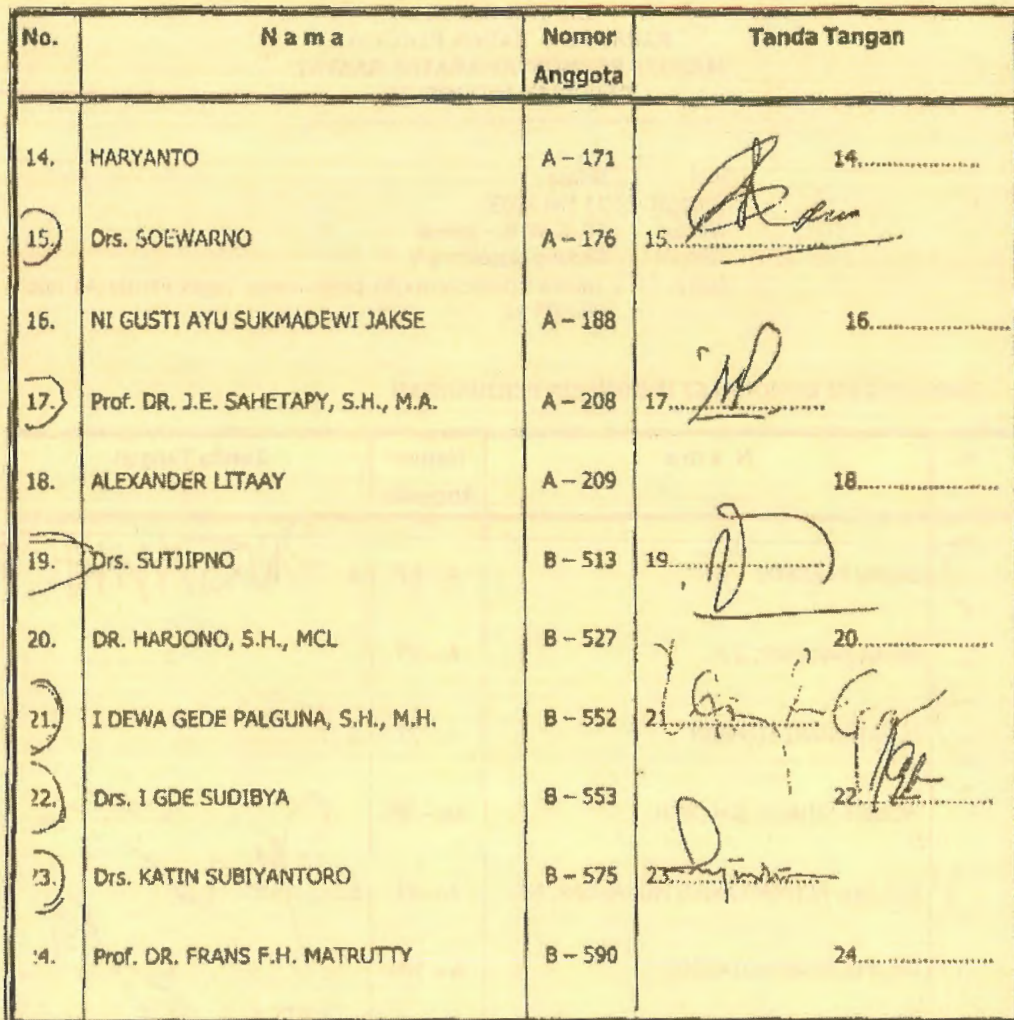 No. Nama Nomor Anggota Tanda Tangan
14. HARYANTO A – 171 14....................
15. Drs. SOEWARNO A – 176 15....................
16. NI GUSTI AYU SUKMADEWI JAKSE A – 188 16....................
17. Prof. DR. J.E. SAHETAPY, S.H., M.A. A – 208 17....................
18. ALEXANDER LITAAY A – 209 18....................
19. Drs. SUTJIPNO B – 513 19....................
20. DR. HARJONO, S.H., MCL B – 527 20....................
21. I DEWA GEDE PALGUNA, S.H., M.H. B – 552 21....................
22. Drs. I GDE SUDIBYA B – 553 22....................
23. Drs. KATIN SUBIYANTORO B – 575 23....................
24. Prof. DR. FRANS F.H. MATRUTTY B – 590 24....................